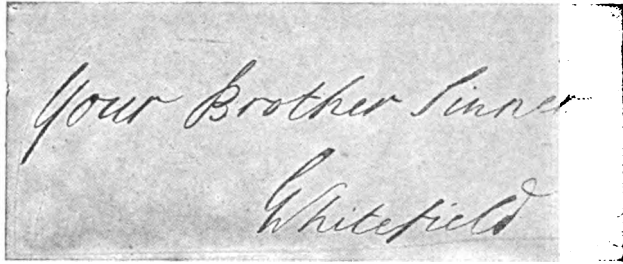 Your Brother Sinner
Whitefield